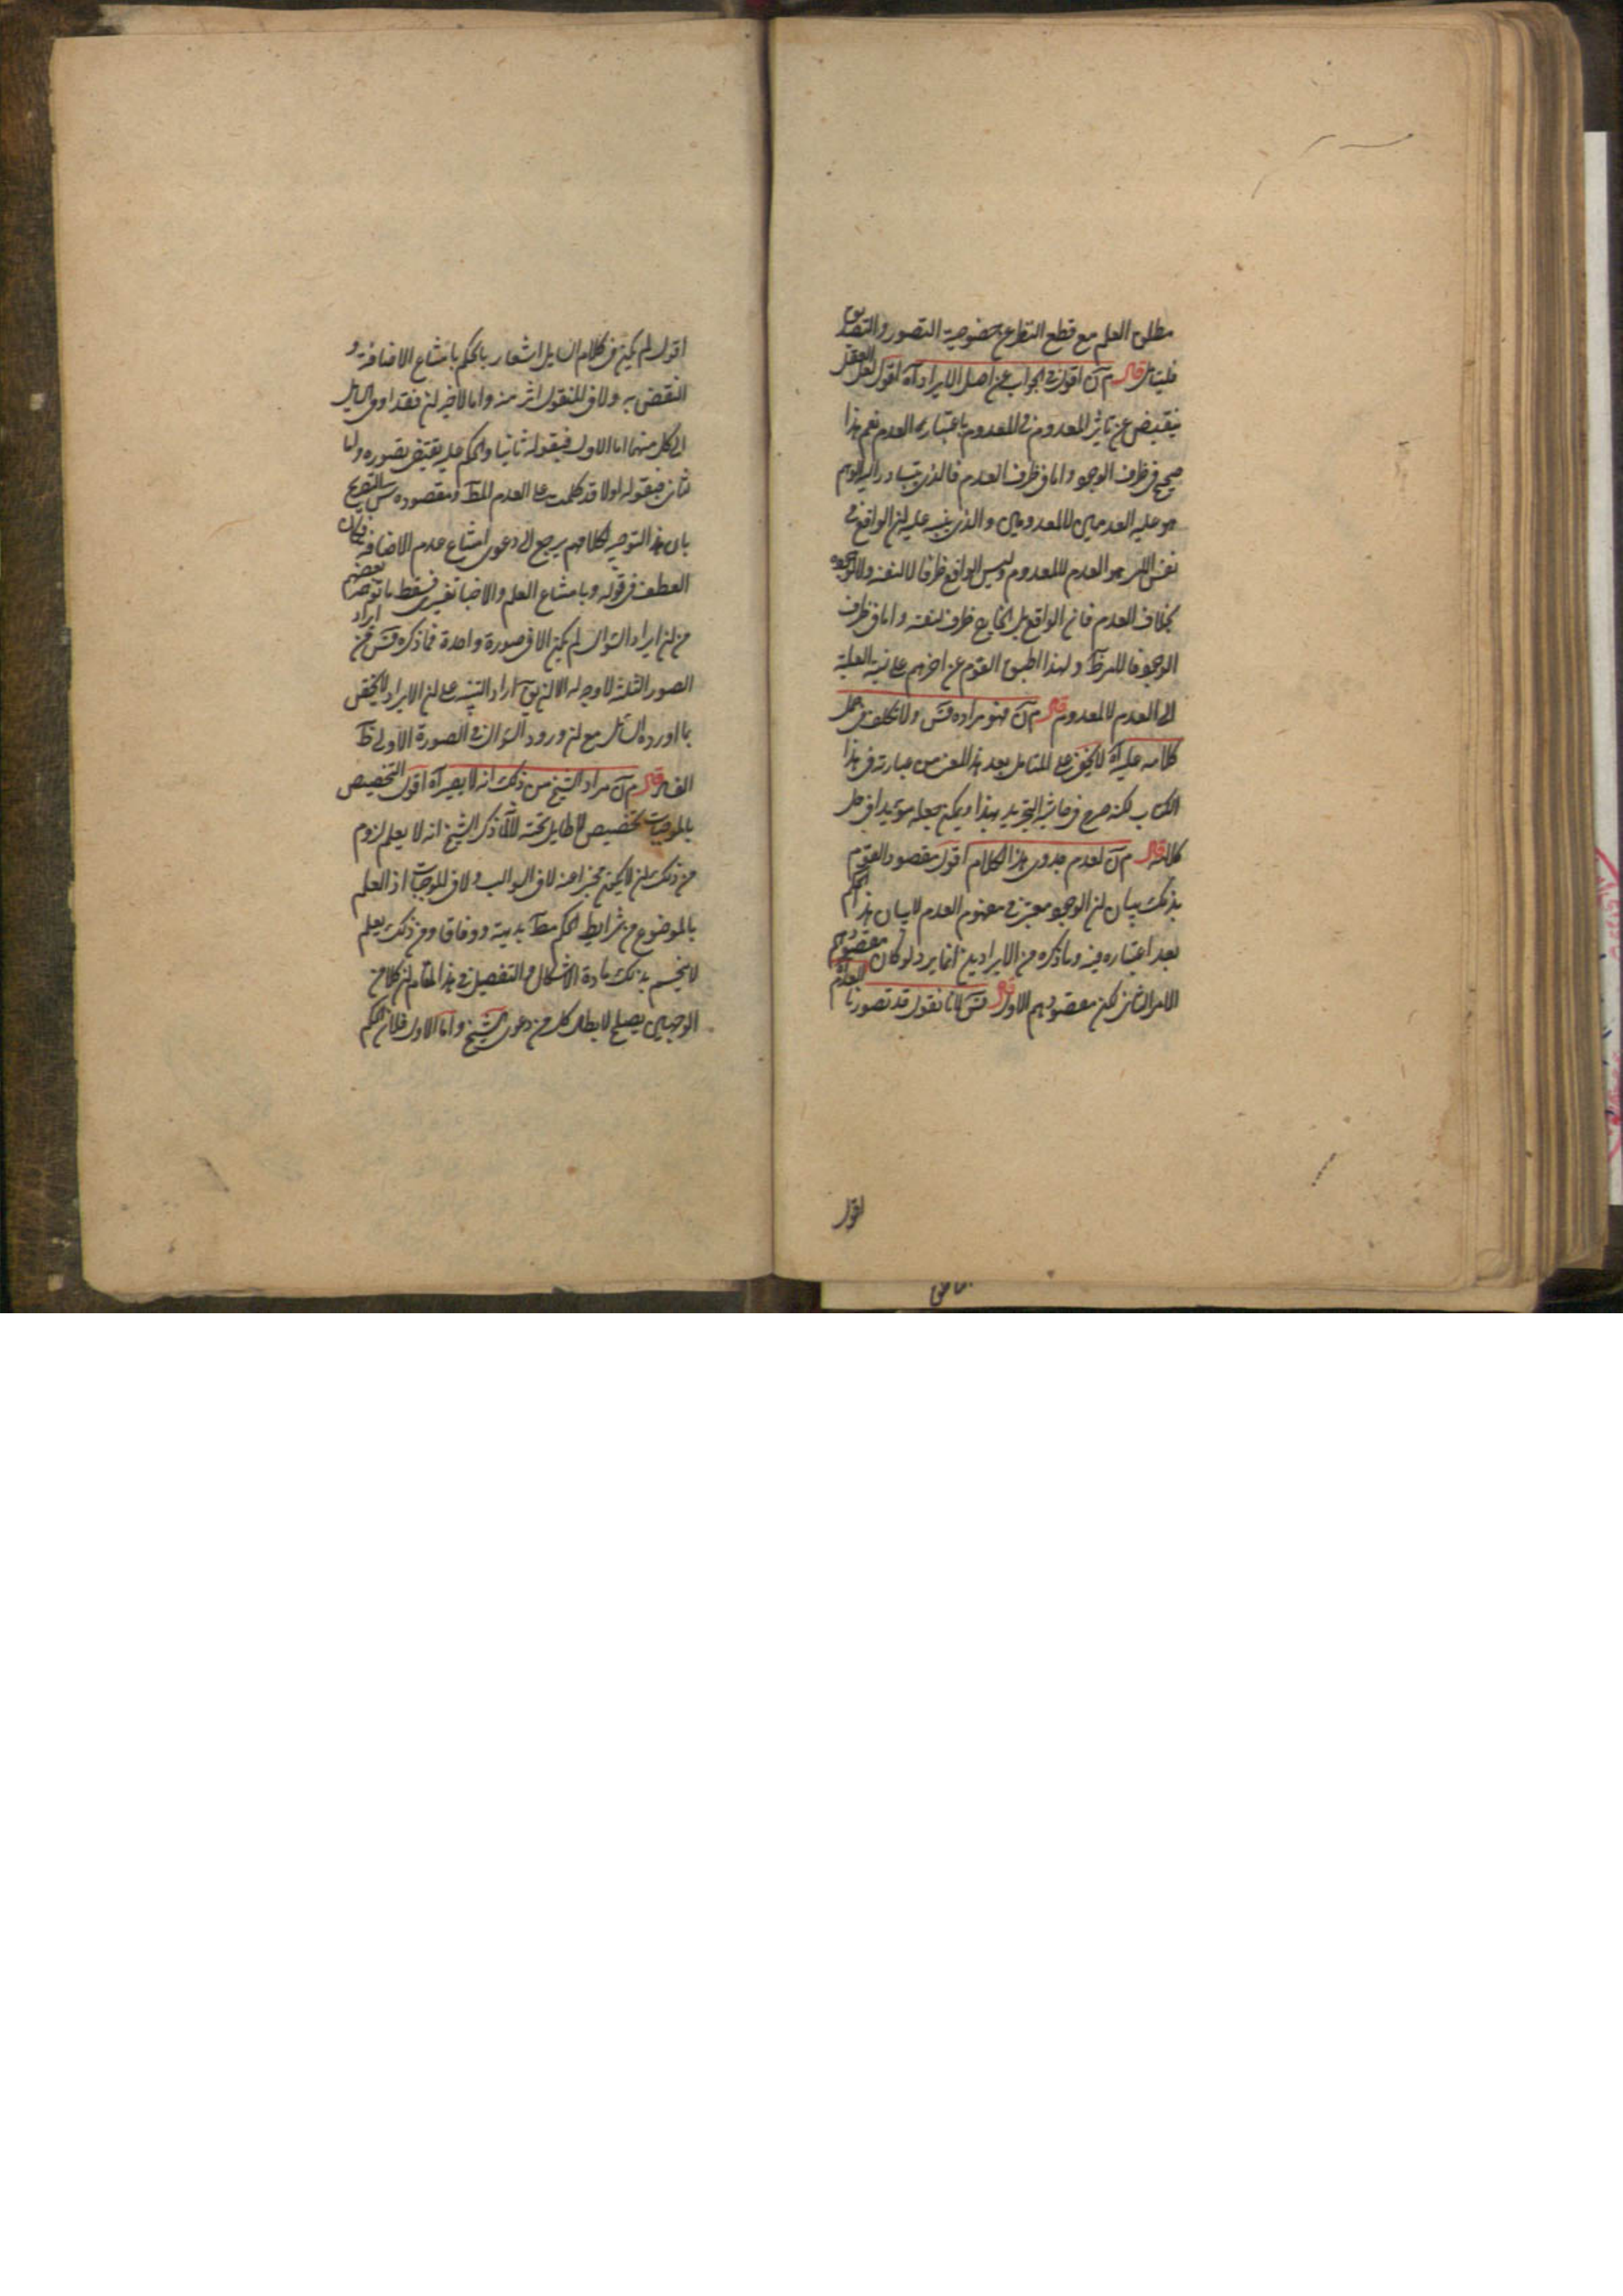 مطلق العلم مع قطع النظر عن خصوصية التصور والتصديق
فليتامل قال م ن اقول في الجواب عن اصل الايراد آه اقول لعل العقل
ينقبض عن تاثير المعدوم في المعدوم باعتبار العدم نعم هذا
صحيح في ظرف الوجود واما في ظرف العدم فالذي يتبادر اليه الوهم
هو علية العدمين للمعدومين والذي ينبه عليه ان الواقع في
نفس الامر هو العدم لا المعدوم وليس الواقع ظرفا لا لنفسه ولا لوجوده
بخلاف العدم فان الواقع بل الخارج ظرف لنفسه واما في ظرف
الوجود فالامر ظ ولهذا اطبق القوم عن اخرهم على نسبة العلية
الى العدم لا المعدوم قال م ن فهو مراده قس ولا تكلف في حمل
كلامه عليه آه لا يخفى على المتامل بعد هذا المعنى من عبارته في هذا
الكتاب لكنه صرح في حاشية التجريد بهذا ويمكن جعله مؤيدا في حل
كلامه قال م ن لعدم جدوى هذا الكلام اقول مقصود القوم
بذلك بيان ان الوجود معتبر في مفهوم العدم لا بيان هذا الحكم
بعد اعتباره فيه وما ذكره من الايرادين انما يرد لو كان مقصودهم
الامر الثاني لكن مقصودهم الاول قوله قس لانا نقول قد تصورنا العدم آه
اقول
اقول لم يكن في كلام السايل اشعار بالحكم بامتناع الاضافة و
النقض به ولا في المنقول اثر منه واما لاخير ان فقد اومى السايل
الى كل منهما اما الاول فبقوله ثانيا والحكم عليه يقتضي تصوره واما
الثاني فبقوله اولا قد تكلمت على العدم المط ومقصوده س التصريح
بان هذا التوجيه لكلامهم يرجع الى دعوى امتناع عدم الاضافة وكان
العطف في قوله وبامتناع العلم والاخبار تفسيري فسقط ما توهم بعضهم
من ان ايراد السؤال لم يكن الا في صورة واحدة فما ذكره قس من ايراد
الصور الثلثة لا وجه له الا ان يق اراد التنبيه على ان الايراد لا يختص
بما اورده السائل مع ان ورود السؤال في الصورة الاولى ظ
قال م ن مراد الشيخ من ذلك انه لا يصير آه اقول التخصيص
بالموجبات تخصيص لا طايل تحته لانا ذكر الشيخ انه لا يعلم لزوم
من ذلك ان لا يكون مخبرا عنه لا في السوالب ولا في الموجبات اذ العلم
بالموضوع من شرايط الحكم مط بديهة ووفاقا ومن ذلك يعلم
لا ينحسم بذلك مادة الاشكال والتفصيل في هذا المقام ان كلا من
الوجهين يصلح لابطال كل من دعوى الشيخ واما الاول فلان الحكم